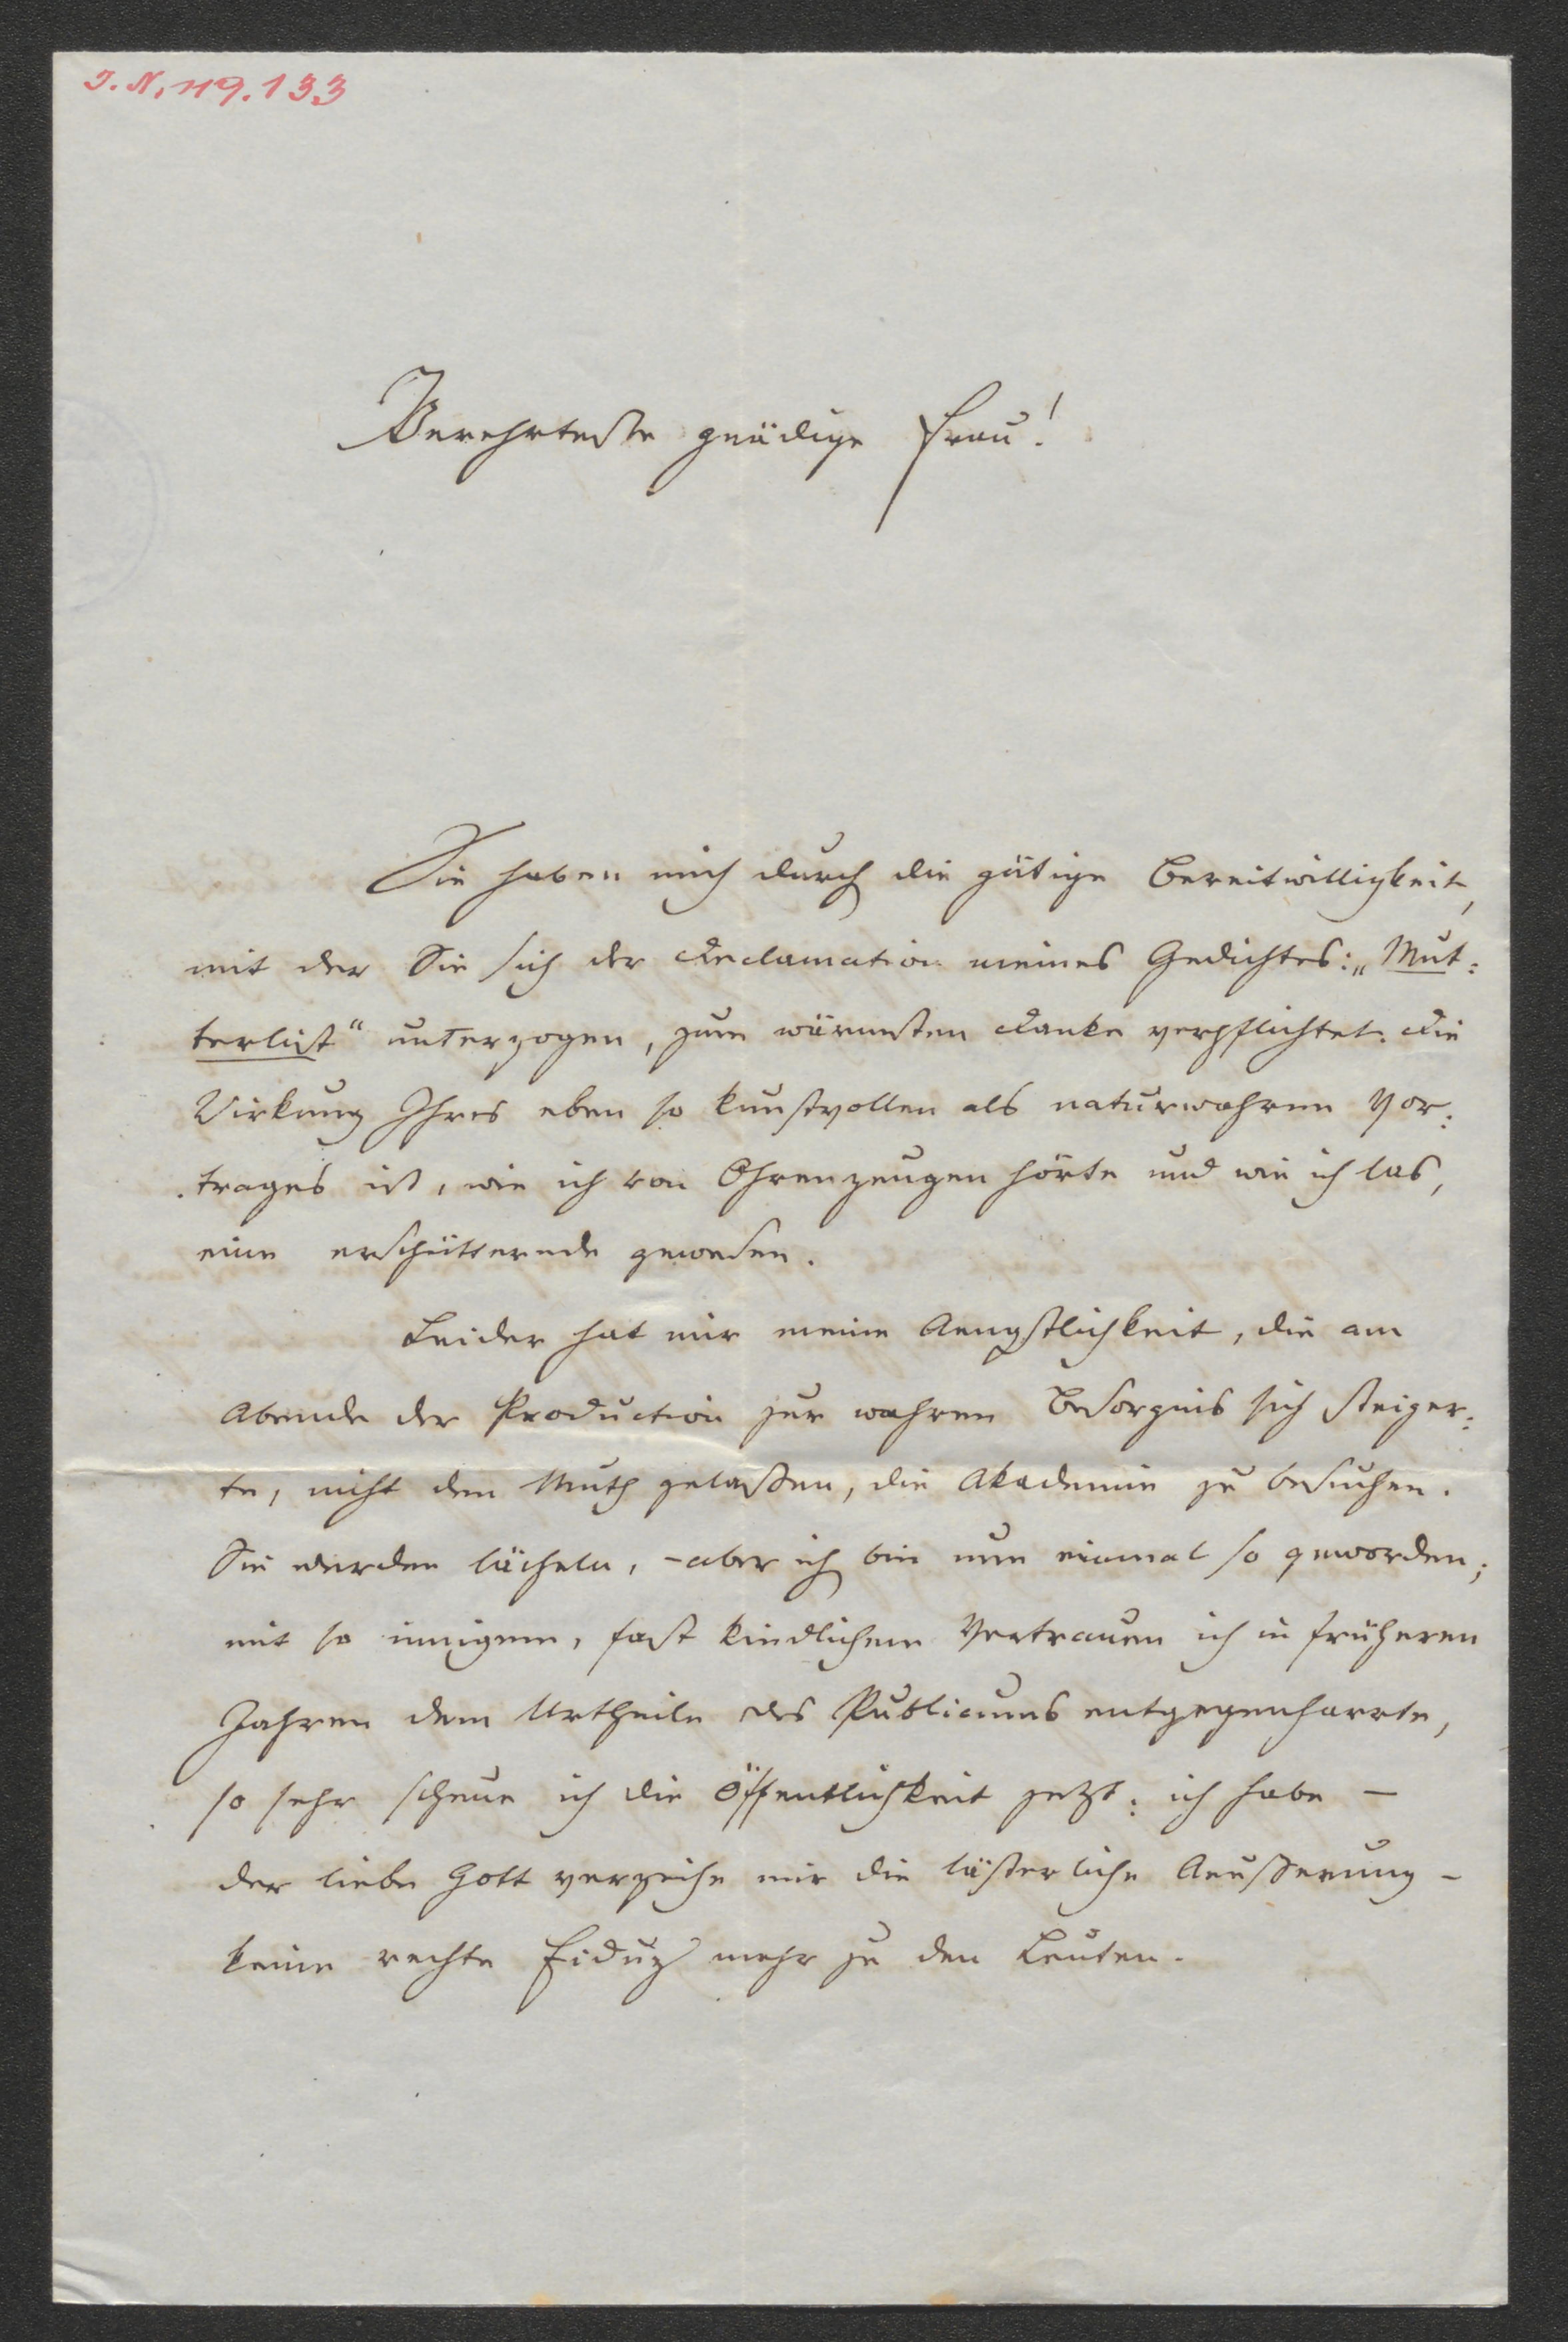 J. N. 119.133
Verehrteste gnädige Frau!
Sie haben mich durch die gütige Bereitwilligkeit,
mit der Sie sich der Declamation meines Gedichtes: „Mut:
terlist“ unterzogen, zum wärmsten Danke verpflichtet. Die
Wirkung Ihres eben so kunstvollen als naturwahren Vor:
trages ist, wie ich von Ohrenzeugen hörte und wie ich las,
eine erschütternde gewesen.
Leider hat mir meine Aengstlichkeit, die am
Abende der Production zur wahren Besorgnis sich steiger:
te, nicht den Muth gelaßen, die Akademie zu besuchen.
Sie werden lächeln, – aber ich bin nun einmal so geworden;
mit so innigem, fast kindlichem Vertrauen ich in früheren
Jahren dem Urtheile des Publicums entgegenharrte,
so sehr scheue ich die Öffentlichkeit jetzt: ich habe –
der liebe Gott verzeihe mir die läßterliche Aeußerung –
keine rechte Fiduz mehr zu den Leuten.